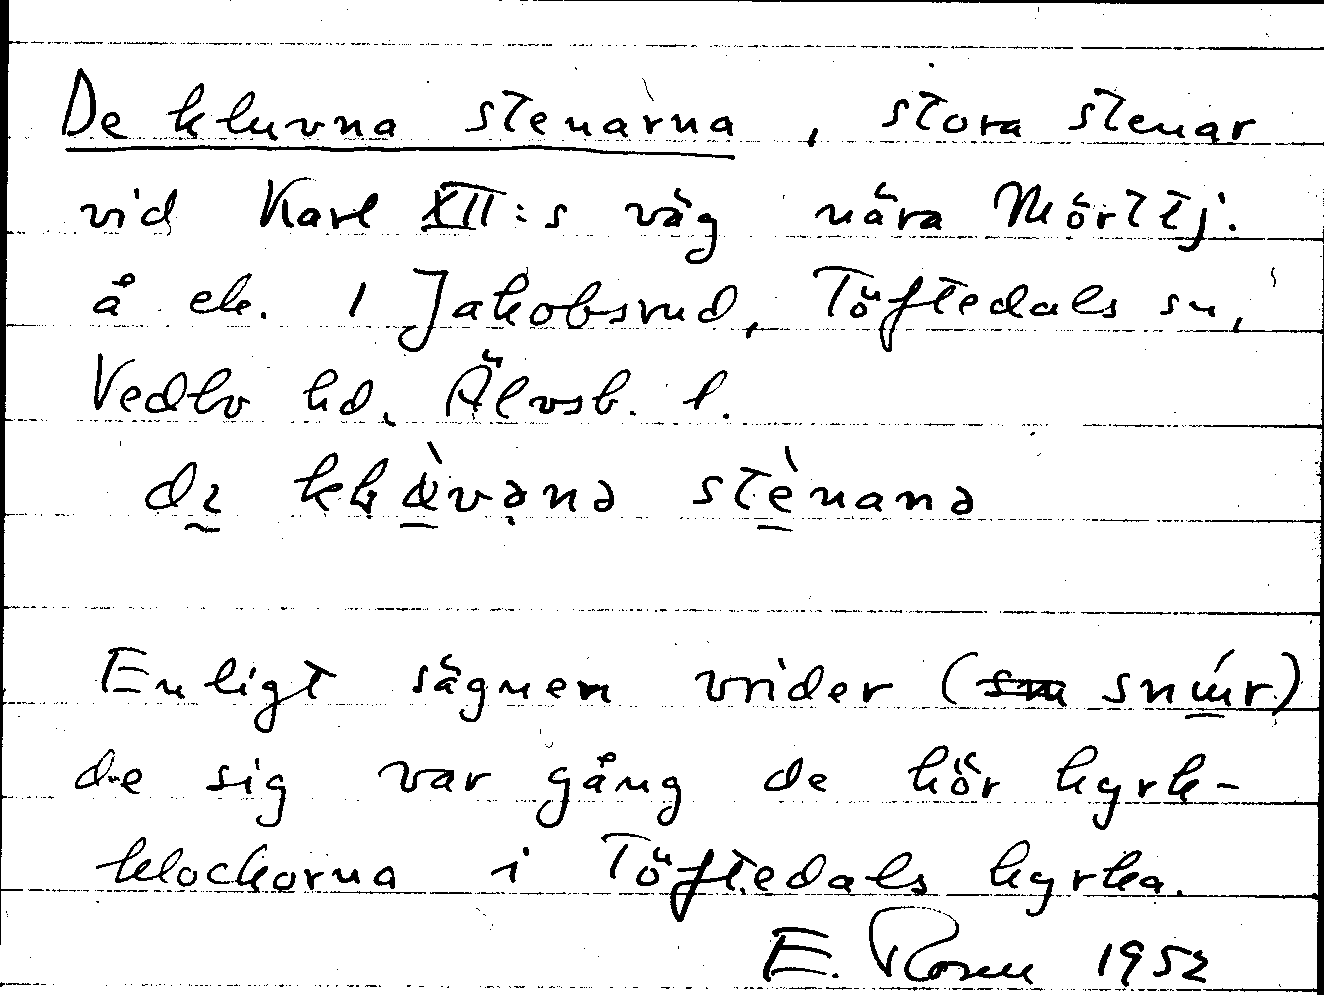 De kluvna stenarna, stora stenar
vid Karl XII:s väg nära Mörttj.
å ek. 1 Jakobsrud, Töftedals sn,
Vedbo hd, Älvsb. l.
stènanə
Enligt sägnen vrider (
de sig var gång de hör kyrk-
klockorna i Töftedals kyrka.
E. Rosen 1952